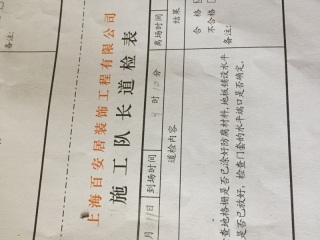 备注:
上海百安居装饰工程有限公司
施工队长道检表
月 日 到场时间 时 分 离场时间
道检内容 结果
查地格栅是否已涂好防腐材料,地板铺设水平 合格
是否已放好,检查门套的水平端口是否正确。 不合格
备注: